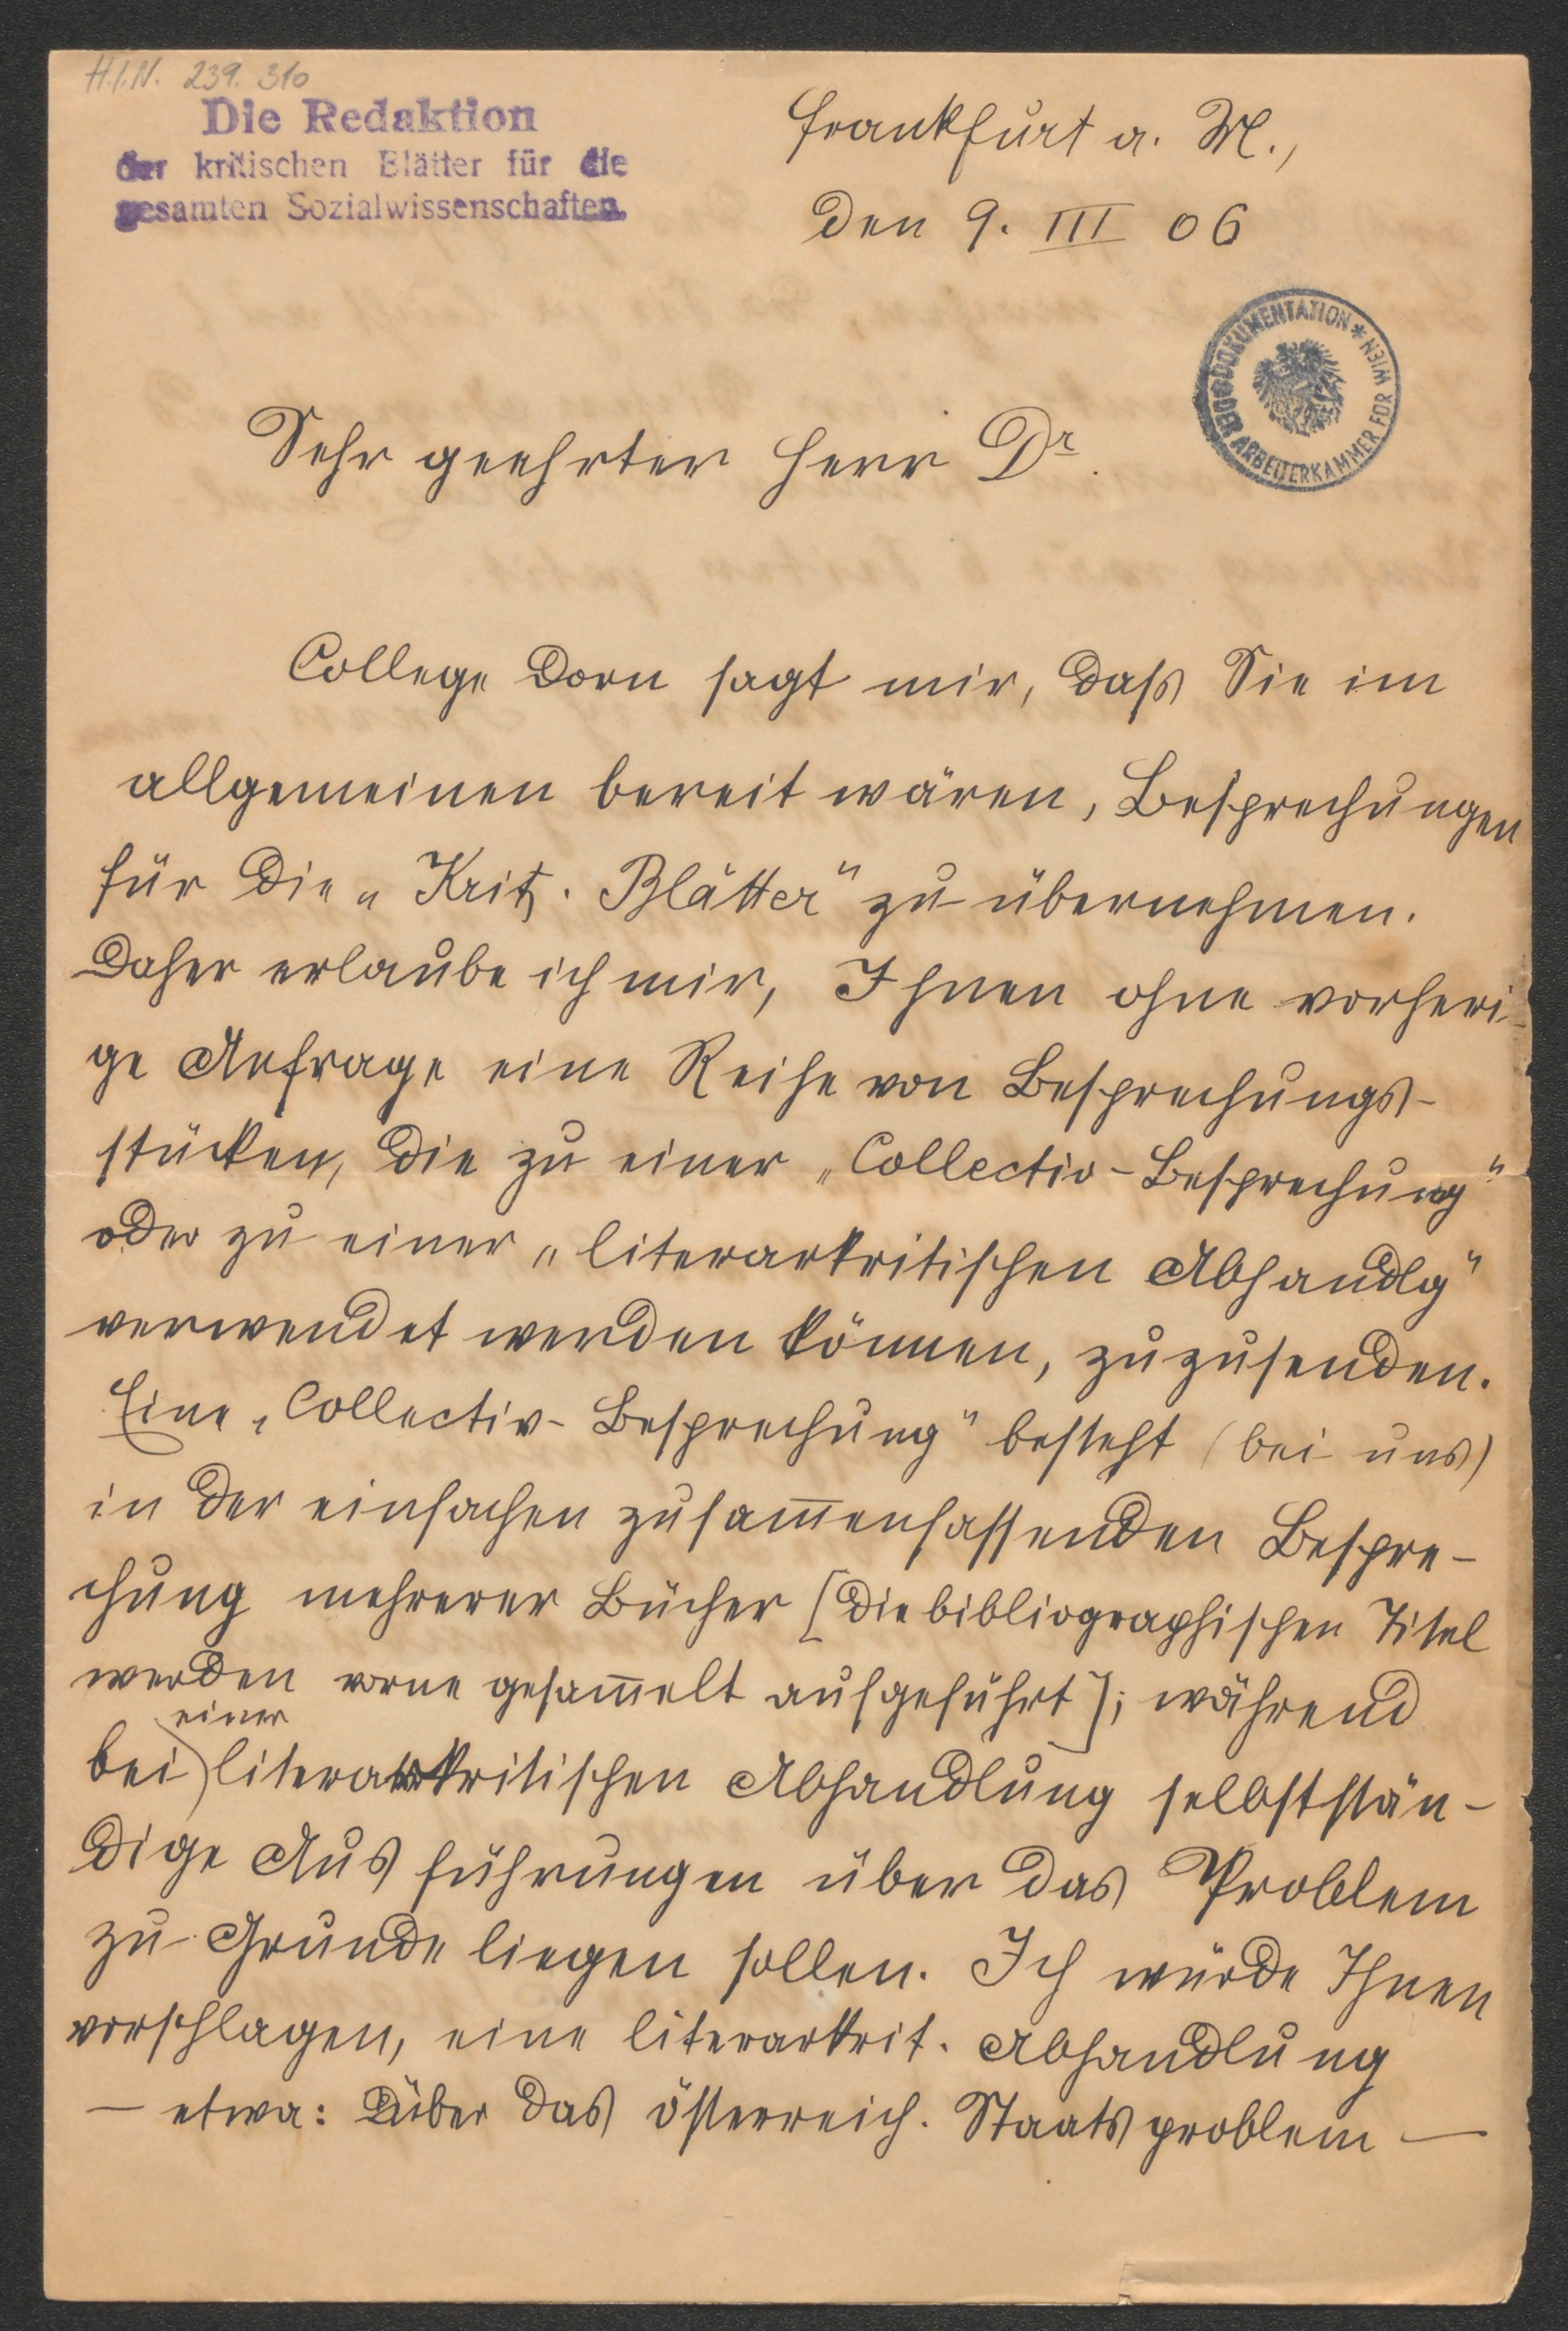 H.I.N. 239.310
Die Redaktion
der kritischen Blätter für die
gesamten Sozialwissenschaften.
Frankfurt a. M.,
den 9. III 06
DOKUMENTATION * DER ARBEITERKAMMER FÜR WIEN
Sehr geehrter Herr Dr.
College Dorn sagt mir, daß Sie im
allgemeinen bereit wären, Besprechungen
für die „Krit. Blätter" zu übernehmen.
Daher erlaube ich mir, Ihnen ohne vorheri-
ge Anfrage eine Reihe von Besprechungs-
stücken, die zu einer „Collectiv-Besprechung"
oder zu einer „literarkritischen Abhandlg"
verwendet werden können, zuzusenden.
Eine „Collectiv-Besprechung" besteht (bei uns)
in der einfachen zusam̅enfassenden Bespre-
chung mehrerer Bücher [die bibliographischen Titel
werden vorne gesam̅elt aufgeführt]; während
einer
bei literarkritischen Abhandlung selbststän-
dige Ausführungen über das Problem
zu Grunde liegen sollen. Ich würde Ihnen
vorschlagen, eine literarkrit. Abhandlung
— etwa: Über das österreich. Staatsproblem —